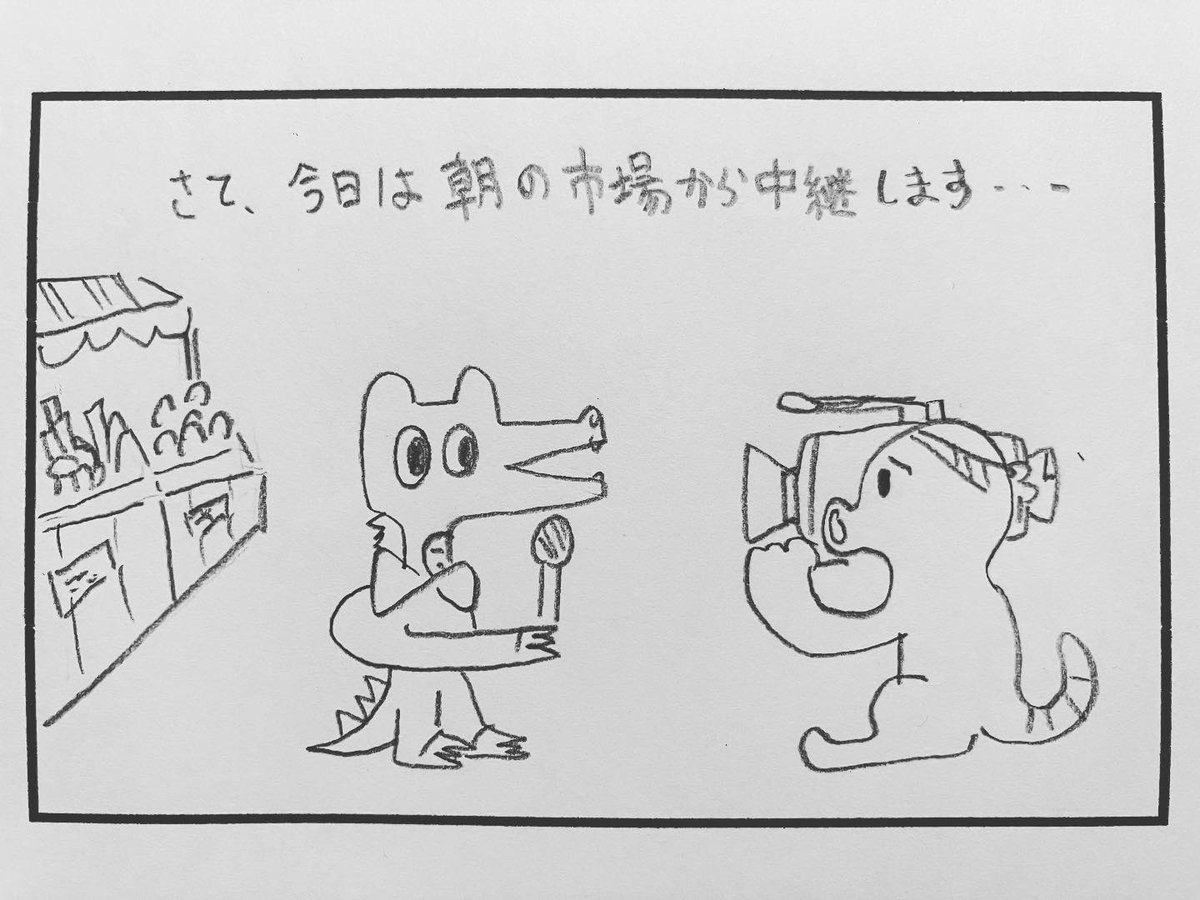 さて、今日は朝の市場から中継します・・・